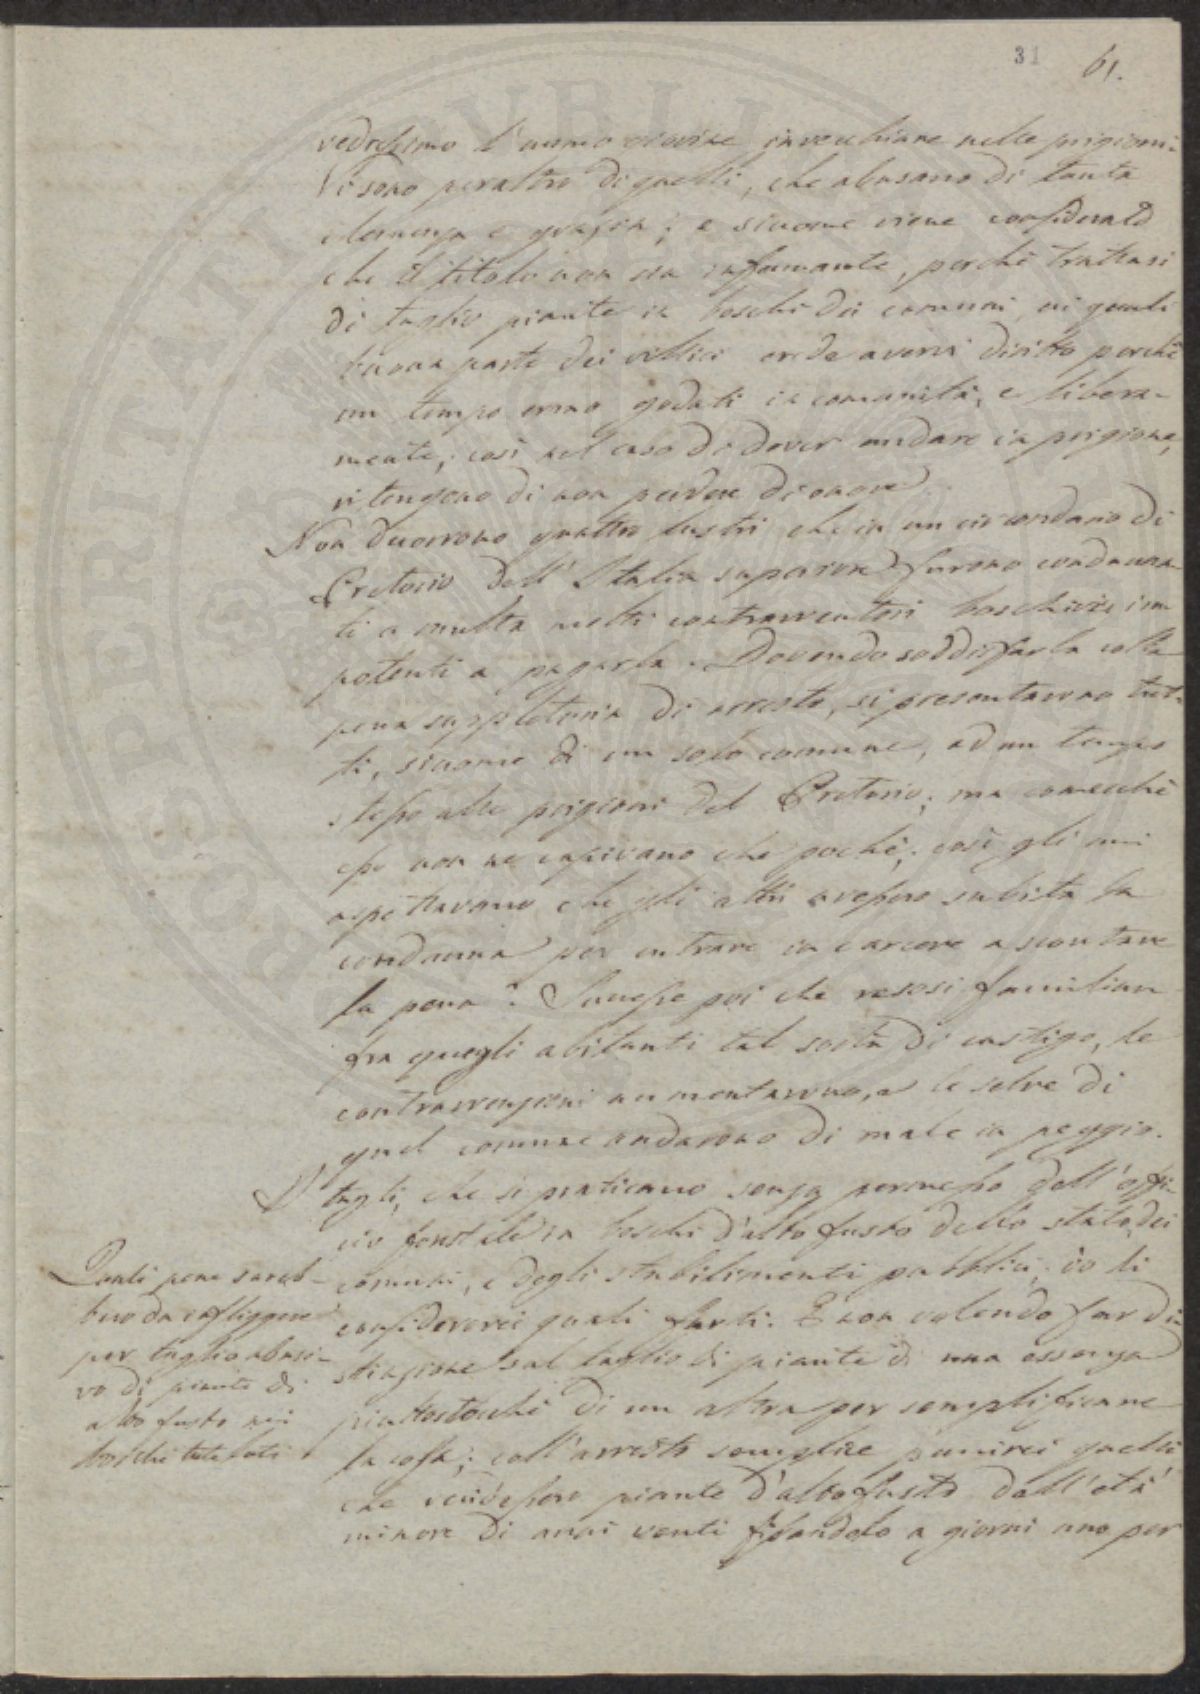 31 61.
vedressimo l'uomo invecchiare nelle prigioni.
Vi sono peraltro di quelli, che abusano di tanta
clemenza e grazia; e siccome viene considerato
che il titolo non sia infamante, perchè trattasi
di taglio piante in boschi dei comuni, ai quali
buona parte dei villici crede avervi diritto perchè
un tempo erano goduti in comunità, e libera-
mente, così nel caso di dover andare in prigione,
ritengono di non perdere di onore.
Non decorrono quattro lustri che in un circondario di
Pretorio dell'Italia superiore furono condanna-
ti a multa molti contravventori boschivi, im
potenti a pagarla. Dovendo soddisfarla colla
pena suppletoria di arresto, si presentarono tut-
ti, siccome di un solo comune, ad un tempo
stesso alle prigioni del Pretorio; ma comecchè
esse non ne capivano che pochi, così gli uni
aspettavano che gli altri avessero subita la
condanna per entrare in carcere a scontare
la pena. Successe poi che resosi familiare
fra quegli abitanti tal sorta di castigo, le
contravvenzioni aumentarono, e le selve di
quel comune andarono di male in peggio.
I tagli, che si praticano senza permesso dell'offi-
cio forestale in boschi d'alto fusto dello stato, dei
comuni, e degli stabilimenti pubblici, io li
considererei quali furti. E non volendo far di-
stinzione sul taglio di piante di una essenza
piuttostochè di un altra per semplificare
la cosa; coll'arresto semplice punirei quelli
che piante d'alto fusto dell'età
minore di anni venti fissandolo a giorni uno per
Quali pene sareb-
bero da infliggere
per taglio abusi-
vo di piante di
alto fusto nei
boschi tutelati